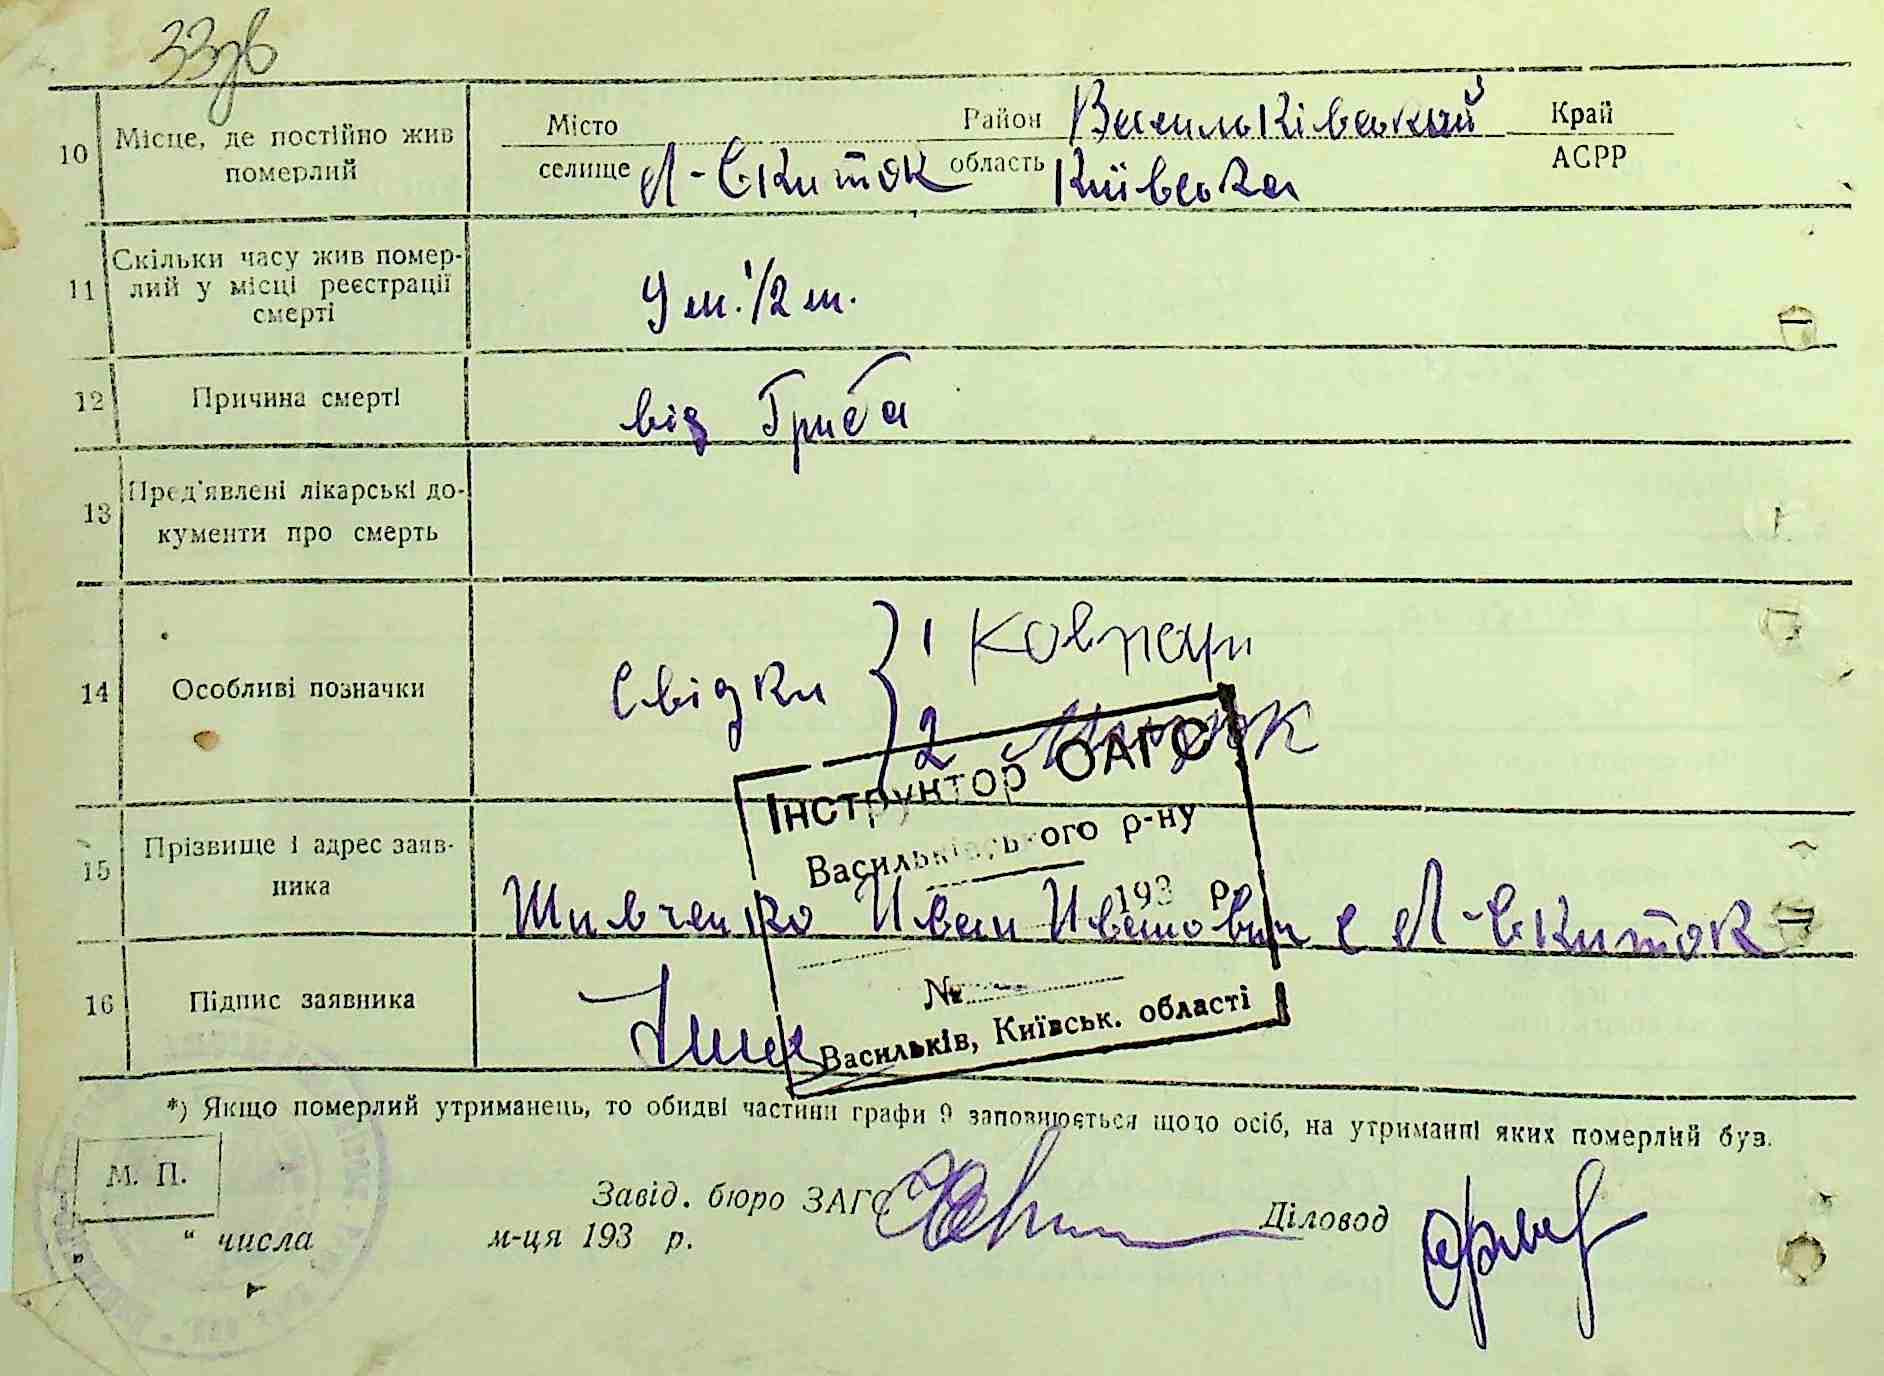 33зв
10 Місце, де постійно жив померлий
Місто Район Васильківський Край
селище Л-Скиток область Київська АСРР
11 Скільки часу жив помер-
лий у місці реєстрації
смерті
9 м. 1/2 м.
12 Причина смерті від Гриба
13 Пред'явлені лікарські до-
кументи про смерть
14 Особливі позначки
Свідки 1 Ковпар
2
Інструктор ОАГС
Васильківського р-ну
193 р.
№
Васильків, Київськ. області
15 Прізвище і адрес заяв-
ника
Шевченко Иван Иванович с Л-Скиток
16 Підпис заявника
*) Якщо померлий утриманець, то обидві частини графи 9 заповнюється щодо осіб, на утриманні яких померлий був.
М. П.
Завід. бюро ЗАГС Діловод
„ “ числа м-ця 193 р.